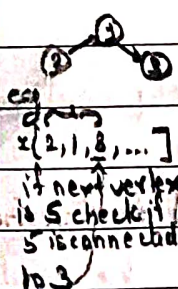 2 1 3
eg
x[2,1,3,...]
if next vertex
is 5 check if
5 is connected
to 3